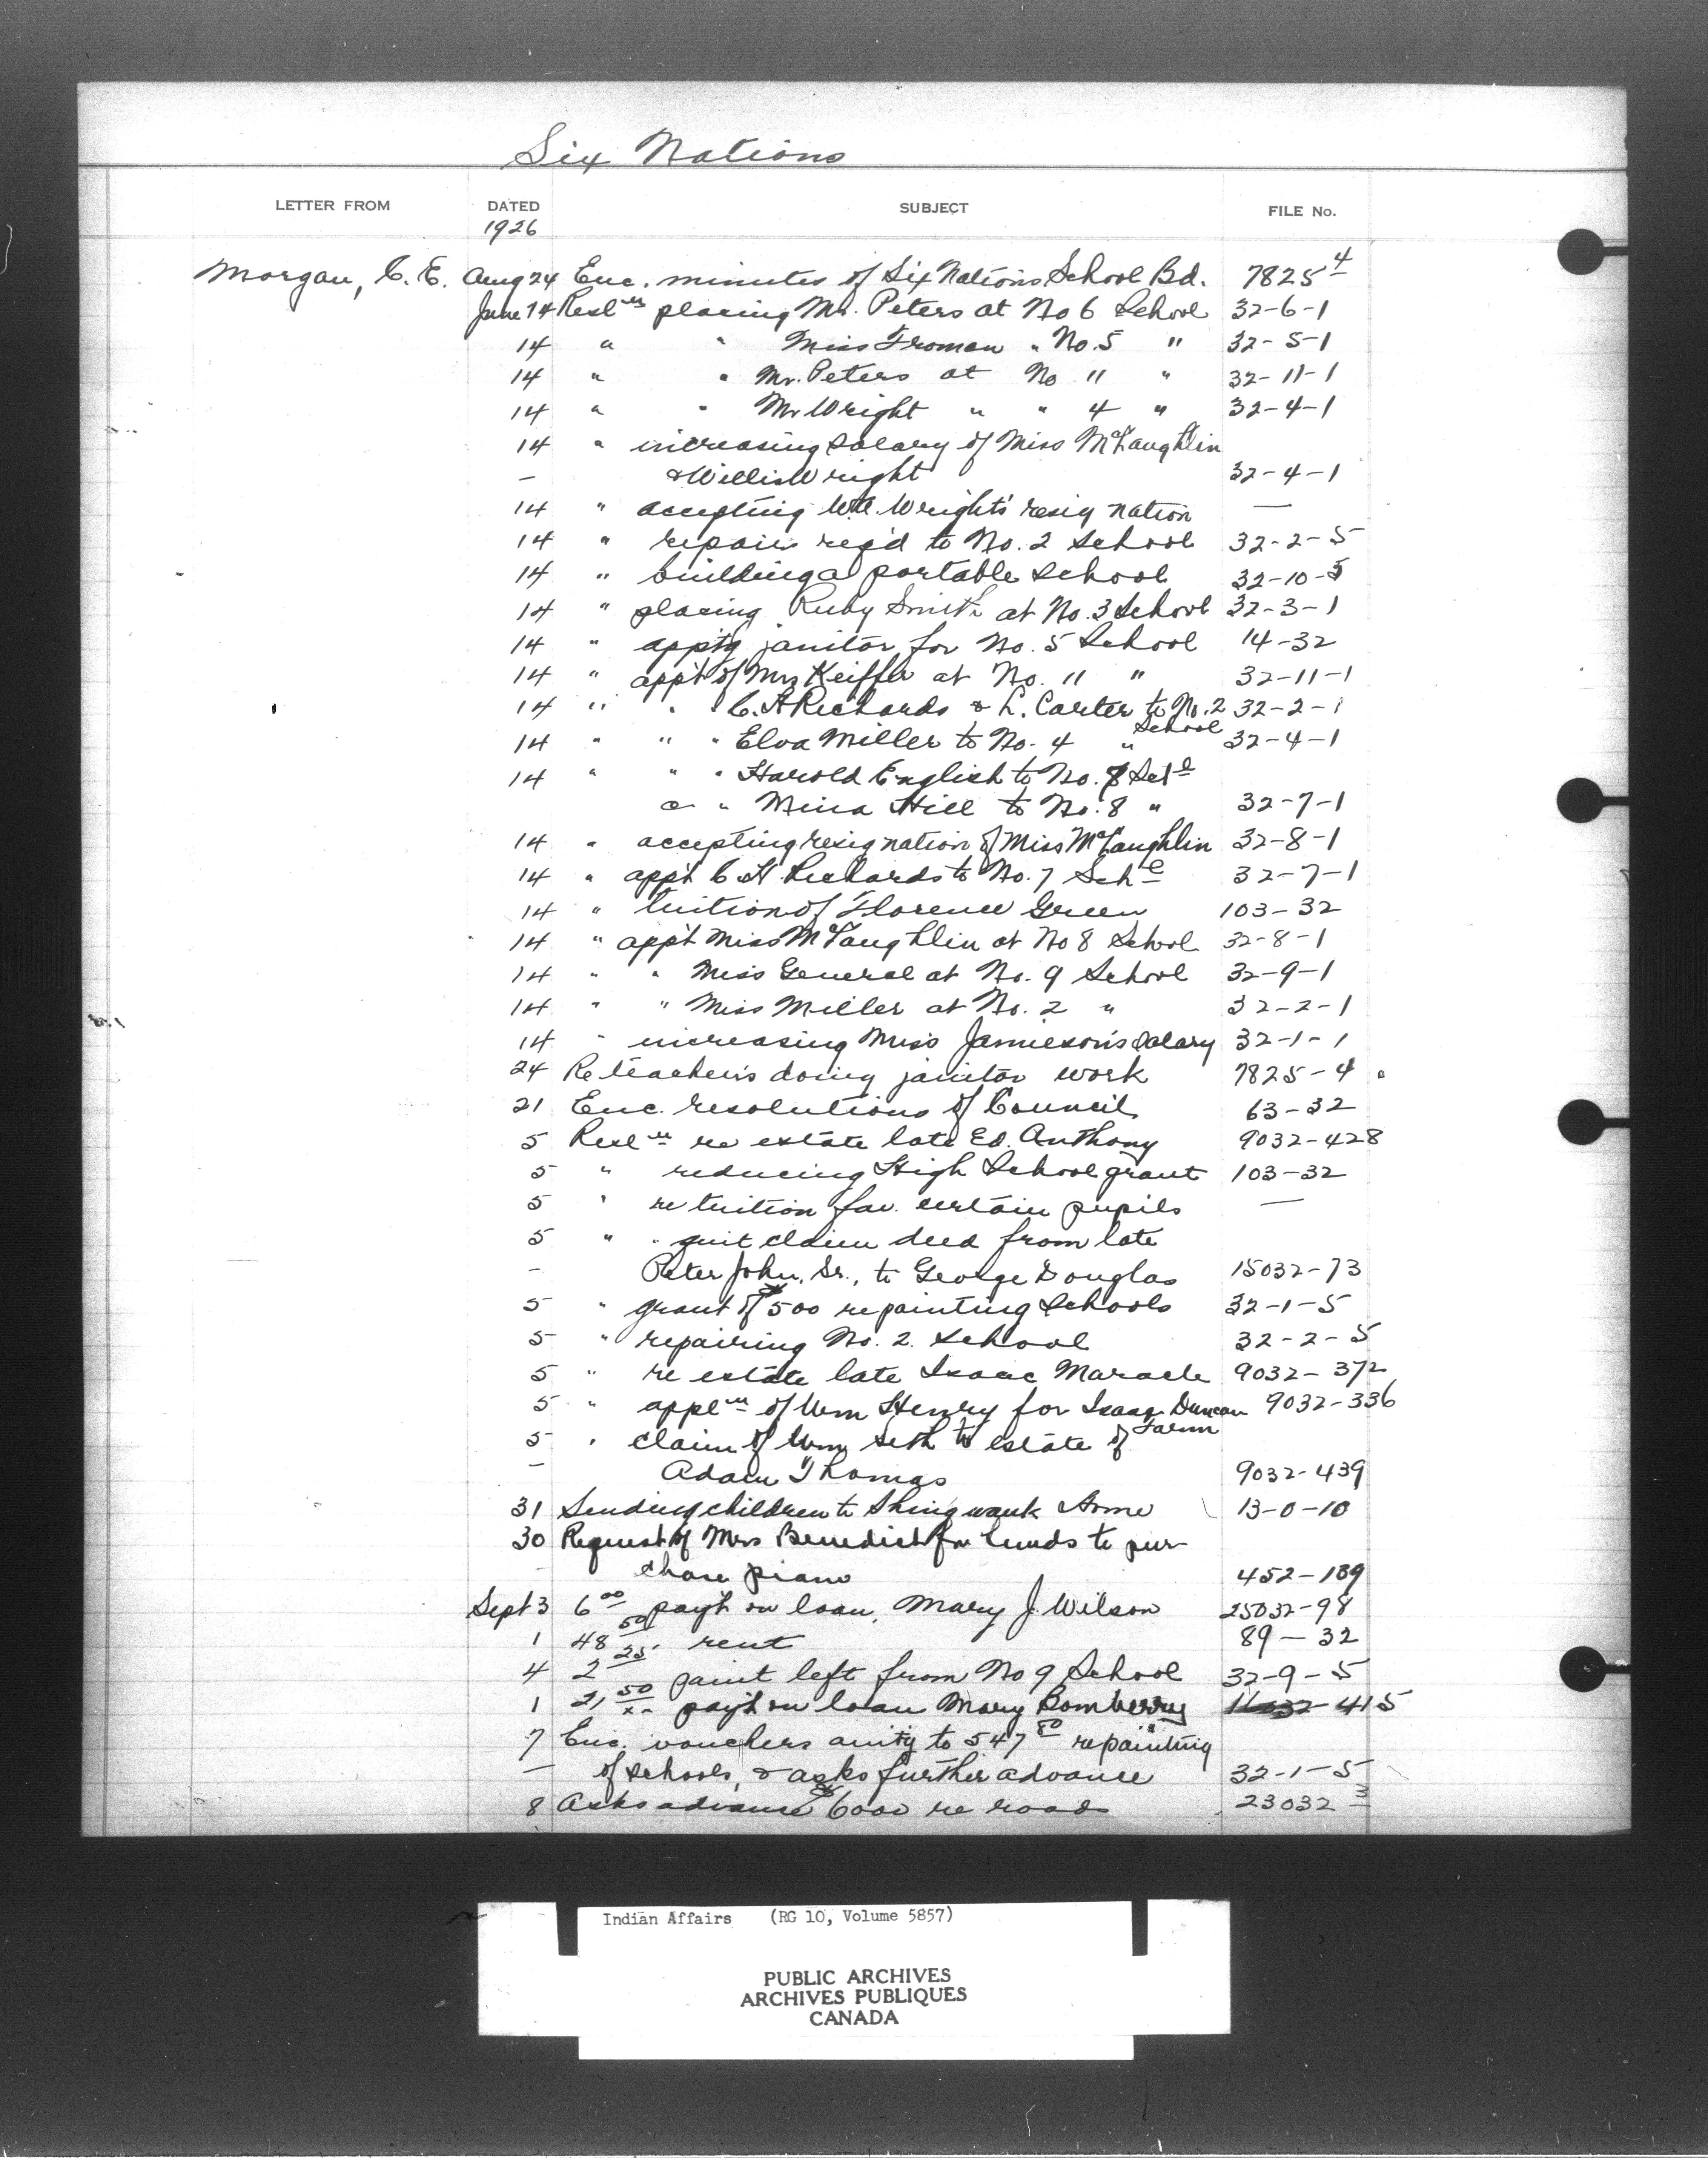 Six Nations
LETTER FROM DATED SUBJECT FILE No.
1926
Morgan, C. E. Aug 24 Enc. minutes of Six Nations School Bd. 7825 4
June 14 Resl re placing Mr. Peters at No 6 School 32-6-1
14 " " Miss Froman " No. 5 " 32-5-1
14 " " Mr. Peters at No 11 " 32-11-1
14 " " Mr Wright " " 4 " 32-4-1
14 " increasing salary of Miss McLaughlin
— & Willis Wright 32-4-1
14 " accepting W.A. Wright's resignation —
14 " repairs req'd to No. 2 School 32-2-5
14 " building a portable school 32-10-5
14 " placing Ruby Smith at No. 3 School 32-3-1
14 " appt'g janitor for No. 5 School 14-32
14 " app't of Mrs Keiffer at No. 11 " 32-11-1
14 " " " C. H Richards & L. Carter to No. 2 32-2-1
School
14 " " " Elva Miller to No. 4 " 32-4-1
14 " " " Harold English to No. 7 Schl
" Mina Hill to No. 8 " 32-7-1
14 " accepting resignation of Miss McLaughlin 32-8-1
14 " app't C H Richards to No. 7 Schl 32-7-1
14 " tuition of Florence Green 103-32
14 " app't Miss McLaughlin at No 8 School 32-8-1
14 " " Miss General at No. 9 School 32-9-1
14 " " Miss Miller at No. 2 " 32-2-1
14 " increasing Miss Jamieson's salary 32-1-1
24 Re teacher's doing janitor work 7825-4
21 Enc. resolutions of Council 63-32
5 Resln re estate late Ed. Anthony 9032-428
5 " reducing High School grant 103-32
5 " re tuition for certain pupils —
5 " " quit claim deed from late
— Peter John, Sr., to George Douglas 15032-73
5 " grant of $500 repainting schools 32-1-5
5 " repairing No. 2. school 32-2-5
5 " re estate late Isaac Maracle 9032-372
5 " appln of Wm Henry for Isaac Duncan 9032-336
Farm
5 " claim of Wm Seth to estate of
— Adam Thomas 9032-439
31 Sending children to Shingwauk Home 13-0-10
30 Request of Mrs Benedict for funds to pur-
chase piano 452-139
Sept 3 6 00 pay't on loan, Mary J. Wilson 25032-98
1 48 50 " rent 89-32
4 2 25 paint left from No 9 School 32-9-5
1 21 50 pay't on loan Mary Bomberry 415
7 Enc. vouchers am'tg to 547 50 repainting
— of schools, & asks further advance 32-1-5
8 Asks advance $6000 re roads 23032 3
Indian Affairs (RG 10, Volume 5857)
PUBLIC ARCHIVES
ARCHIVES PUBLIQUES
CANADA